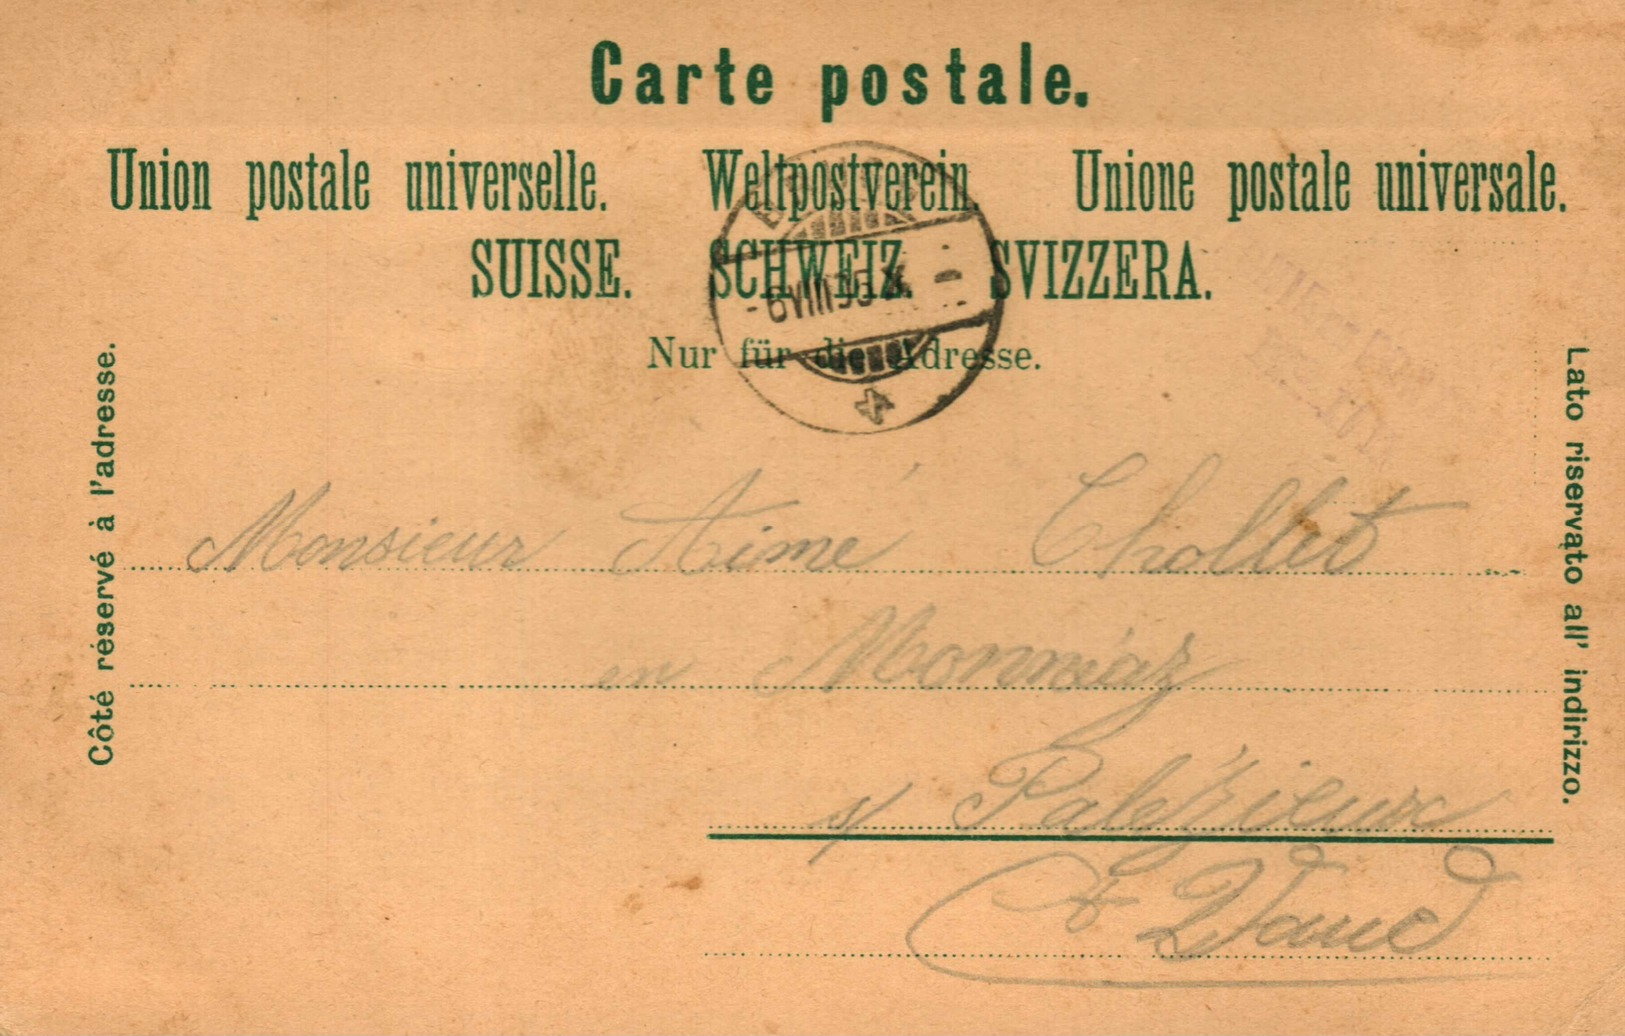 Carte postale.
Union postale universelle. Weltpostverein. Unione postale universale.
SUISSE. SCHWEIZ. SVIZZERA.
Nur für die Adresse.
Côté réservé à l'adresse.
Lato riservato all' indirizzo.
Monsieur Aimé Chollet
en Monniaz
s/ Palézieux
Ct Vaud